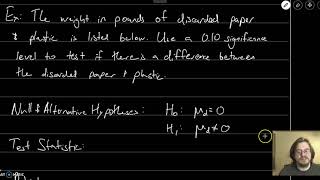 Ex: The weight in pounds of discarded paper
& plastic is listed below. Use a 0.10 significance
level to test if there is a difference between
the discarded paper & plastic.
Null & Alternative Hypotheses: H₀: μd=0
H₁: μd≠0
Test Statistic: